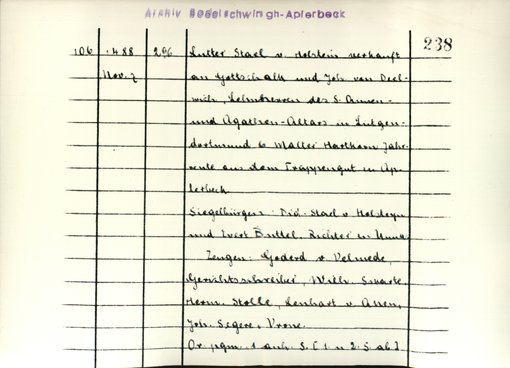 Archiv Bodelschwingh-Aplerbeck
238
106 1488 Nov. 7 296 Lutter Stael v. Holstein verkauft
an Gottschalk und Joh. van Deel-
wich, Lehnherren des S. Annen-
und Agathen-Altars in Lütgen-
dortmund 6 Malter Hartkorn Jahr-
rente aus dem Trappengut in Ap-
lerbeck
Siegelbürgen: Did. Stael v. Holsteyn
und Evert Buttel, Richter in Unna
Zeugen: Goderd v. Velmede,
Gerichtsschreiber, Wilh. Swarte,
Herm. Stolle, Lenhart v. Assen,
Joh. Segere, Vrone.
Or. pgm. 1 anh. S. [1 u 2 S. ab]